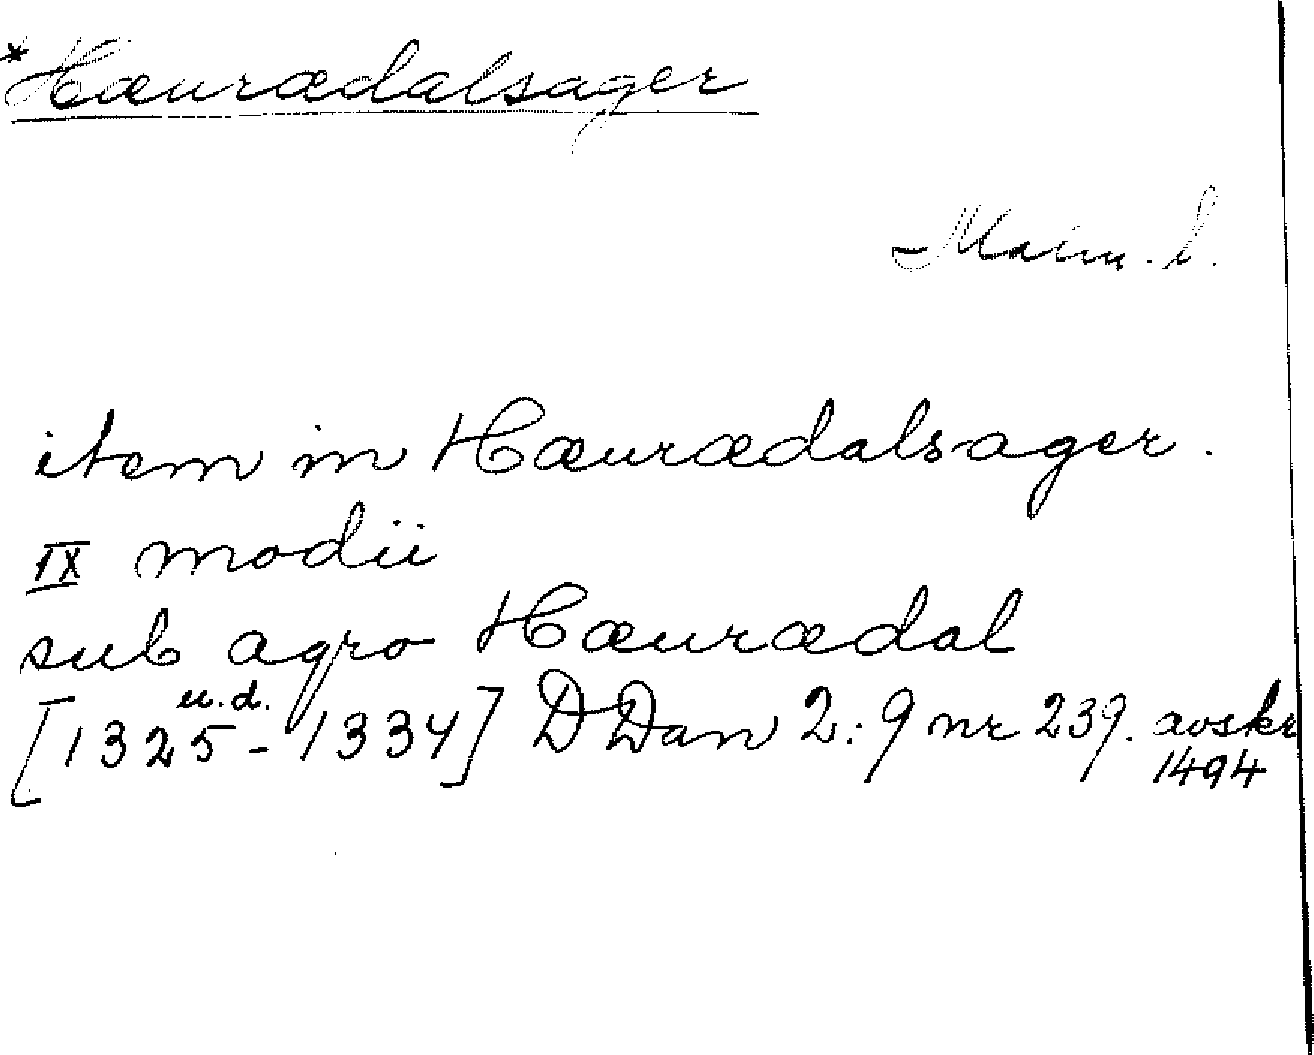 *Hæurædalsager
Malm. l.
item in Hæurædalsager.
IX modii
sub agro Hæurædal
u.d.
[1325-1334] DDan 2:9 nr 239. avskr
1494